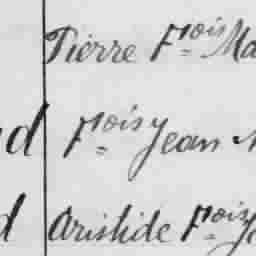 Pierre Fois Ma
d Fois Jean
d Aristide Fois